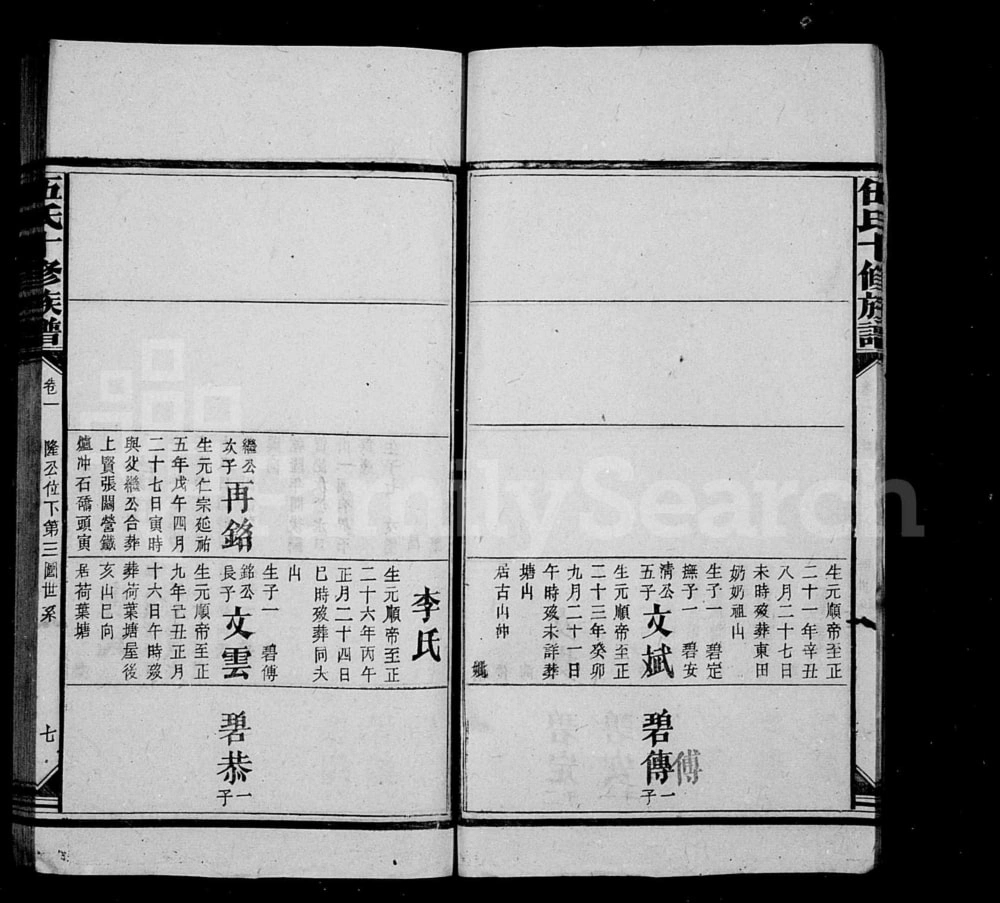 伍氏十修族譜
生元順帝至正
二十一年辛丑
八月二十七日
未時歿葬東田
奶奶祖山
生子一 碧定
撫子一 碧安
清公
五子
文斌
生元順帝至正
二十三年癸卯
九月二十一日
午時歿未詳葬
塘山
居古山冲
碧傳
一子
傅
李氏
生元順帝至正
二十六年丙午
正月二十四日
巳時歿葬同夫
山
生子一 碧傅
繼公
次子
再銘
生元仁宗延祐
五年戊午四月
二十七日寅時
與父繼公合葬
上賢張關營鐵
爐冲石礄頭寅
銘公
長子
文雲
生元順帝至正
九年己丑正月
十六日午時歿
葬荷葉塘屋後
亥山巳向
居荷葉塘
碧恭
一子
伍氏十修族譜
卷一
隆公位下第三圖世系
七
FamilySearch